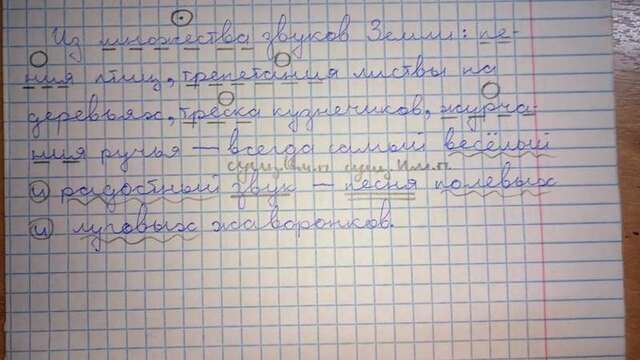 Из множества звуков Земли: пе-
ния птиц, трепетания листвы на
деревьях, треска кузнечиков, журча-
ния ручья — всегда самый весёлый
сущ. Им.п. сущ. Им.п.
и радостный звук — песня полевых
и луговых жаворонков.